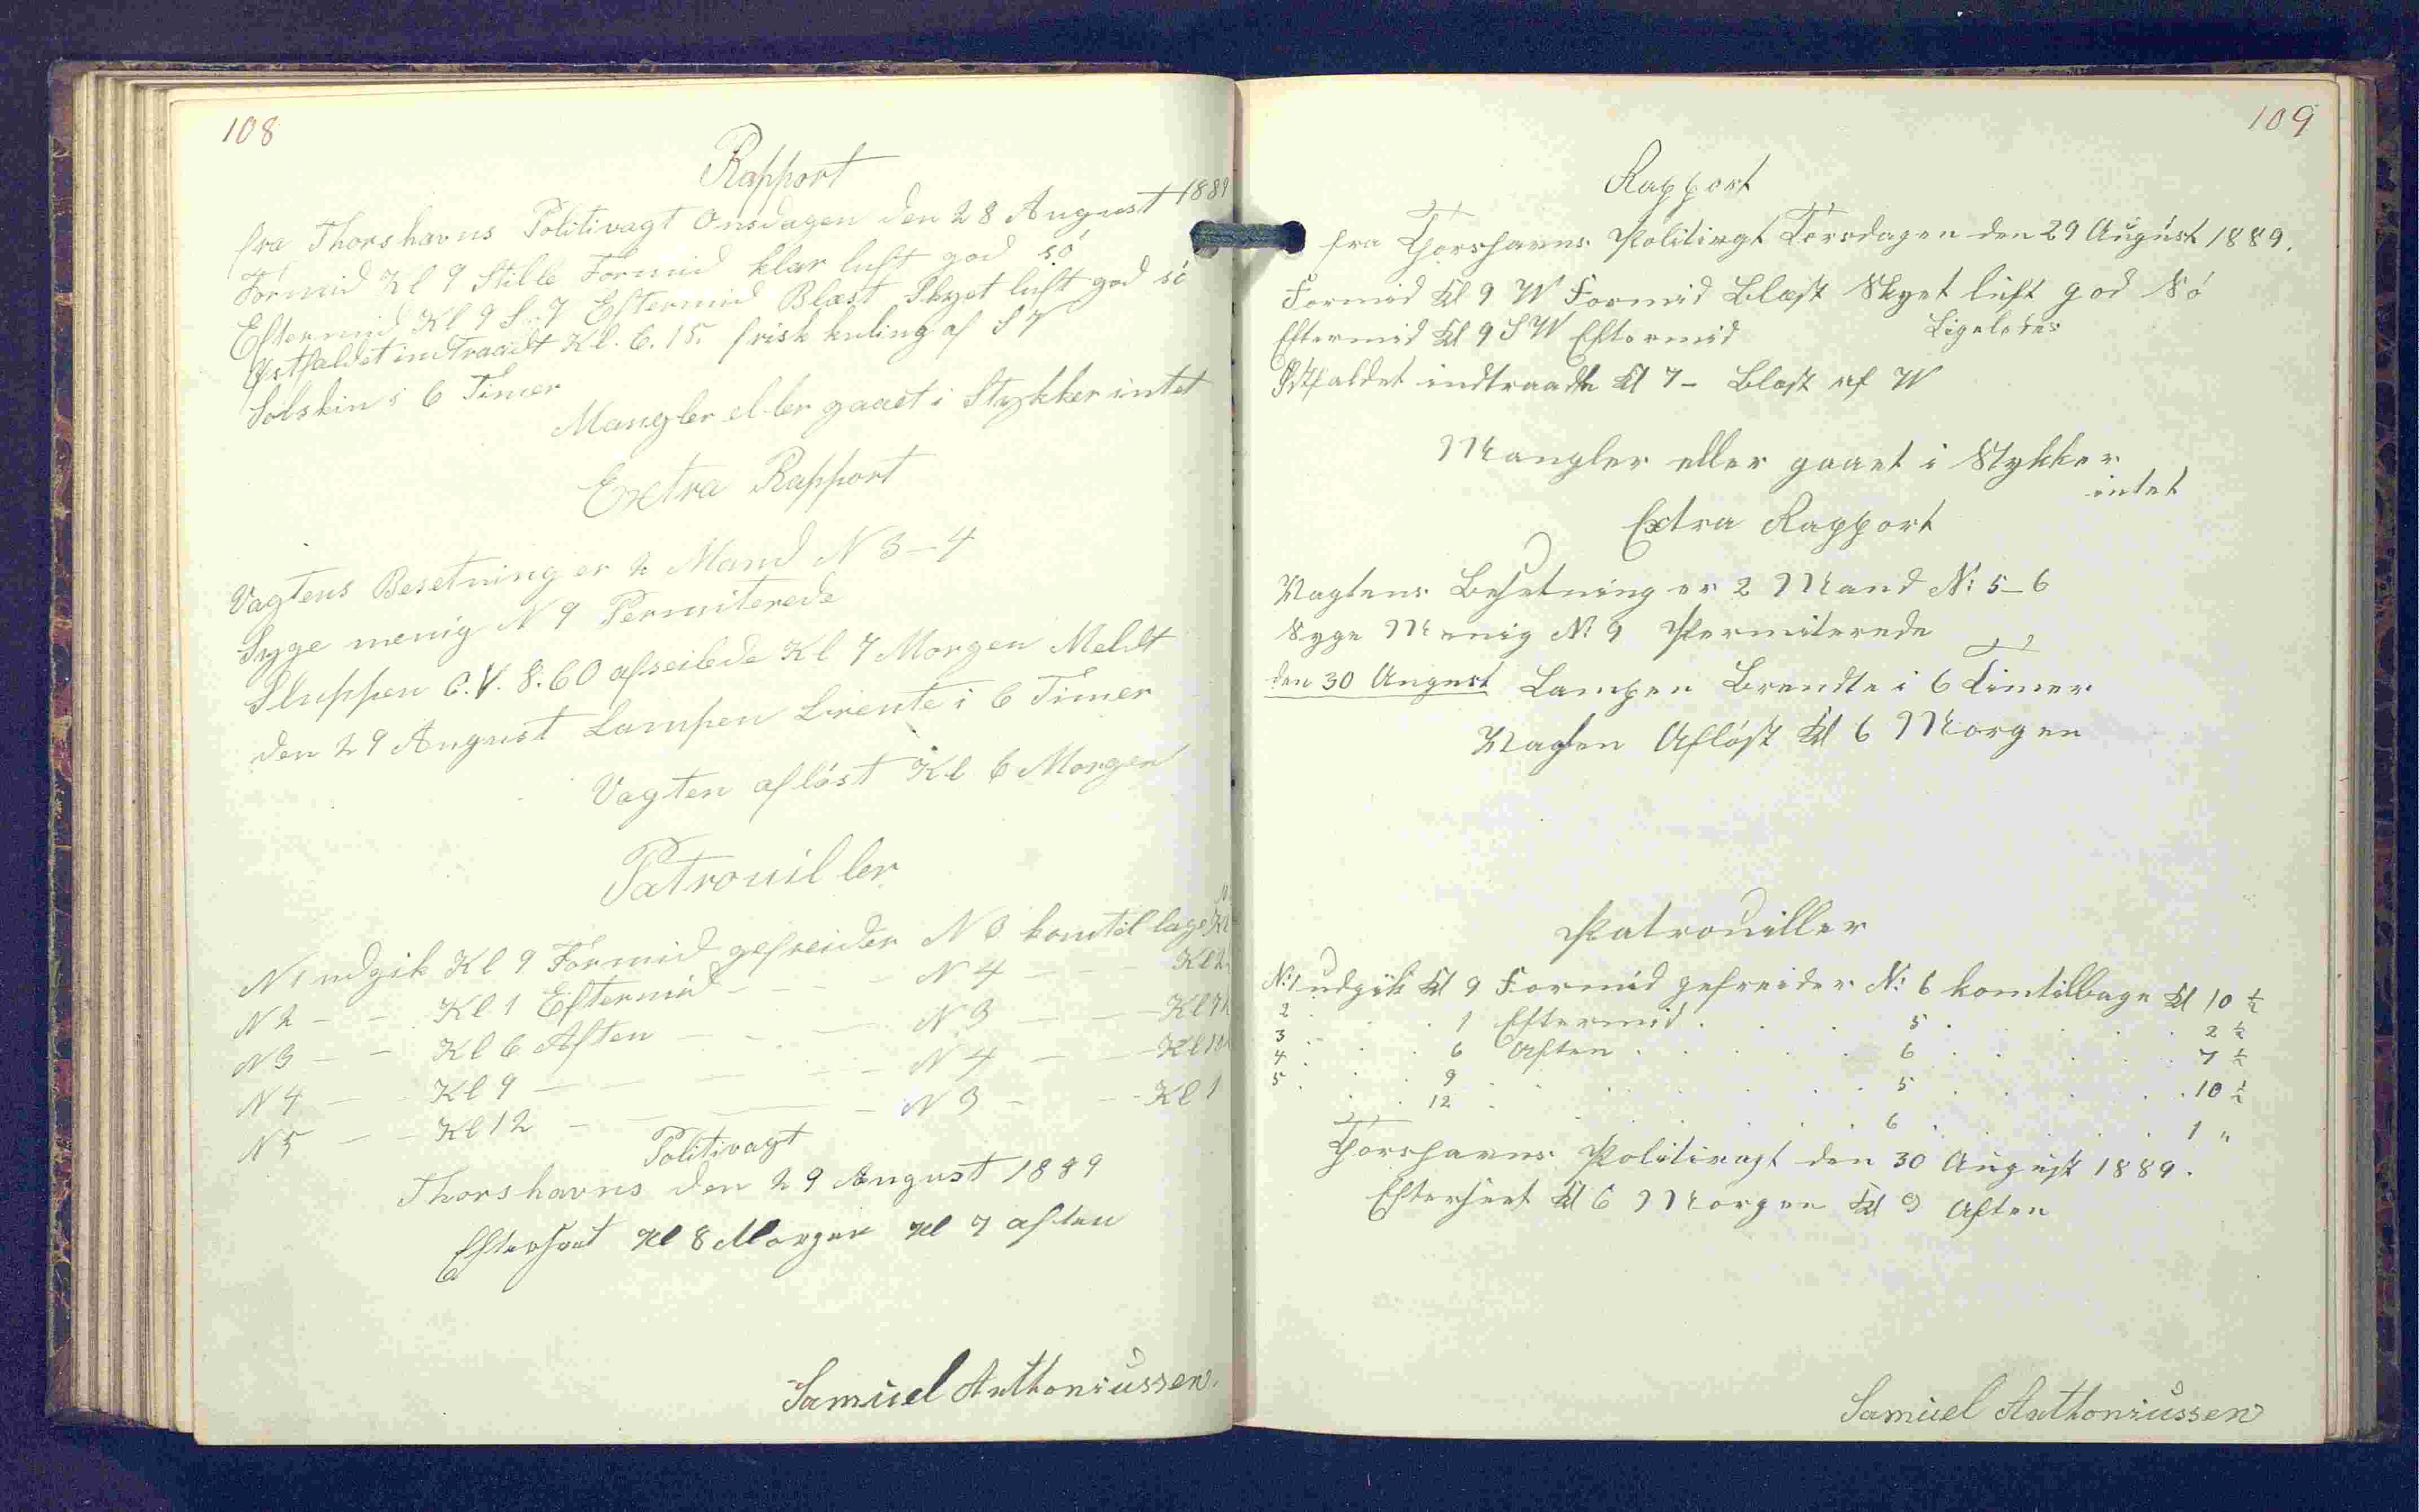 108
Rapport
fra Thorshavns Politivagt Onsdagen den 28 August 1889
Formid Kl 9 Stille Formid klar luft god só
Eftermid Kl 9 S. 7 Eftermid Blæst Skyet luft god só
Østfaldet indtraadt Kl. 6. 15. frisk kuling af S 7
Solskin i 6 Timer
Mangler eller gaaet i Stykker intet
Extra Rapport
Vagtens Besetning er 2 Mand N 3 - 4
Syge menig N 9 Permiterede
Sluppen C.V. 8.60 afseilede Kl 7 Morgen Meldt
den 29 August Lampen brente i 6 Timer
Vagten aflóst Kl 6 Morgen
Patrouiller
N 1 udgik Kl 9 Formid gefreider N 3 kom tilbage Kl
N 2 - - Kl 1 Eftermid - - - N 4 - - - Kl 2
N 3 - - Kl 6 Aften - - - N 3 - - - Kl 7
N 4 - - Kl 9 - - - - N 4 - - - Kl 10
N 5 - - Kl 12 - - - - N 3 - - - Kl 1
Politivagt
Thorshavns den 29 August 1889
Efterseet Kl 8 Morgen Kl 7 aften
Samuel Anthoniussen.
109
Rapport
fra Thorshavns Politivagt Torsdagen den 29 August 1889.
Formid Kl 9 W Formid Blæst Skyet luft god Só
Eftermid Kl 9 SW Eftermid Ligeledes
Østfaldet indtraadte Kl 7 - Blæst af W
Mangler eller gaaet i Stykker
intet
Extra Rapport
Vagtens Besetning er 2 Mand N: 5 - 6
Syge Menig N: 9 Permiterede
den 30 August Lampen Brendte i 6 Timer
Vagten Aflóst Kl 6 Morgen
Patrouiller
N: 1 udgik Kl 9 Formid gefreider N: 6 kom tilbage Kl 10 ½
2 . . . 1 Eftermid . . . 5 . . . 2 ½
3 . . . 6 Aften . . . 6 . . . 7 ½
4 . . . 9 . . . 5 . . . 10 ½
5 . . . 12 . . . 6 . . . 1 "
Thorshavns Politivagt den 30 August 1889.
Efterseet Kl 6 Morgen Kl 9 Aften
Samuel Anthoniussen